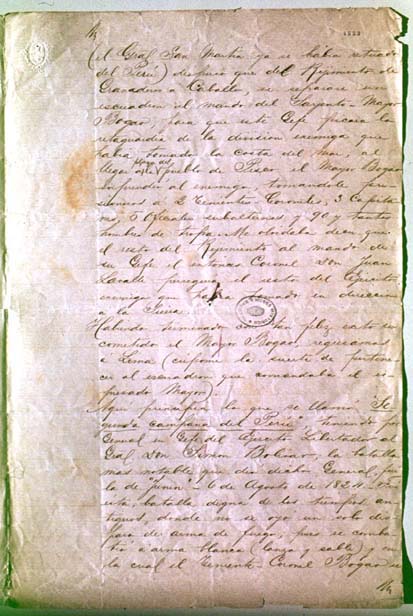 (el Gral San Martin ya se habia retirado
del Perú) dispuso que del Regimiento de
Granaderos a Caballo, se separase un
escuadron al mando del Sargento-Mayor
Bogao, para que este Gefe picara la
retaguardia de la division enemiga que
habia tomado la costa del mar, al
llegar pueblo de Pisco, el Mayor Bogao
sorprendió al enemigo, tomandole pri-
sioneros a 2 Tenientes Coroneles, 3 Capita-
nes, Oficiales subalternos, y 90 y tantos
hombres de tropa. Me olvidaba decir que
el resto del Regimiento al mando de
su Gefe el Coronel Don Juan
Lavalle persiguió el resto del Ejército
enemigo que habia tomado en direccion
a la Sierra.
Habiendo terminado con tan feliz exito su
cometido el Mayor Bogao, regresamos
a Lima (cúpome la suerte de pertene-
cer al escuadron que comandaba el es-
presado Mayor).
Aqui principia la que se llamó "Se-
gunda campaña del Perú", teniendo por
General en Gefe del Ejército Libertador al
Gral Don Simon Bolivar, la batalla
mas notable que dió dicho General, fué
la de "Junin" - 6 de Agosto de 1824 -
esta, batalla digna de los tiempos an-
tiguos, donde no se oyó un solo dis-
paro de arma de fuego, pues se comba-
tió a arma blanca (lanza y sable) y en
la cual el Teniente-Coronel Bogao se